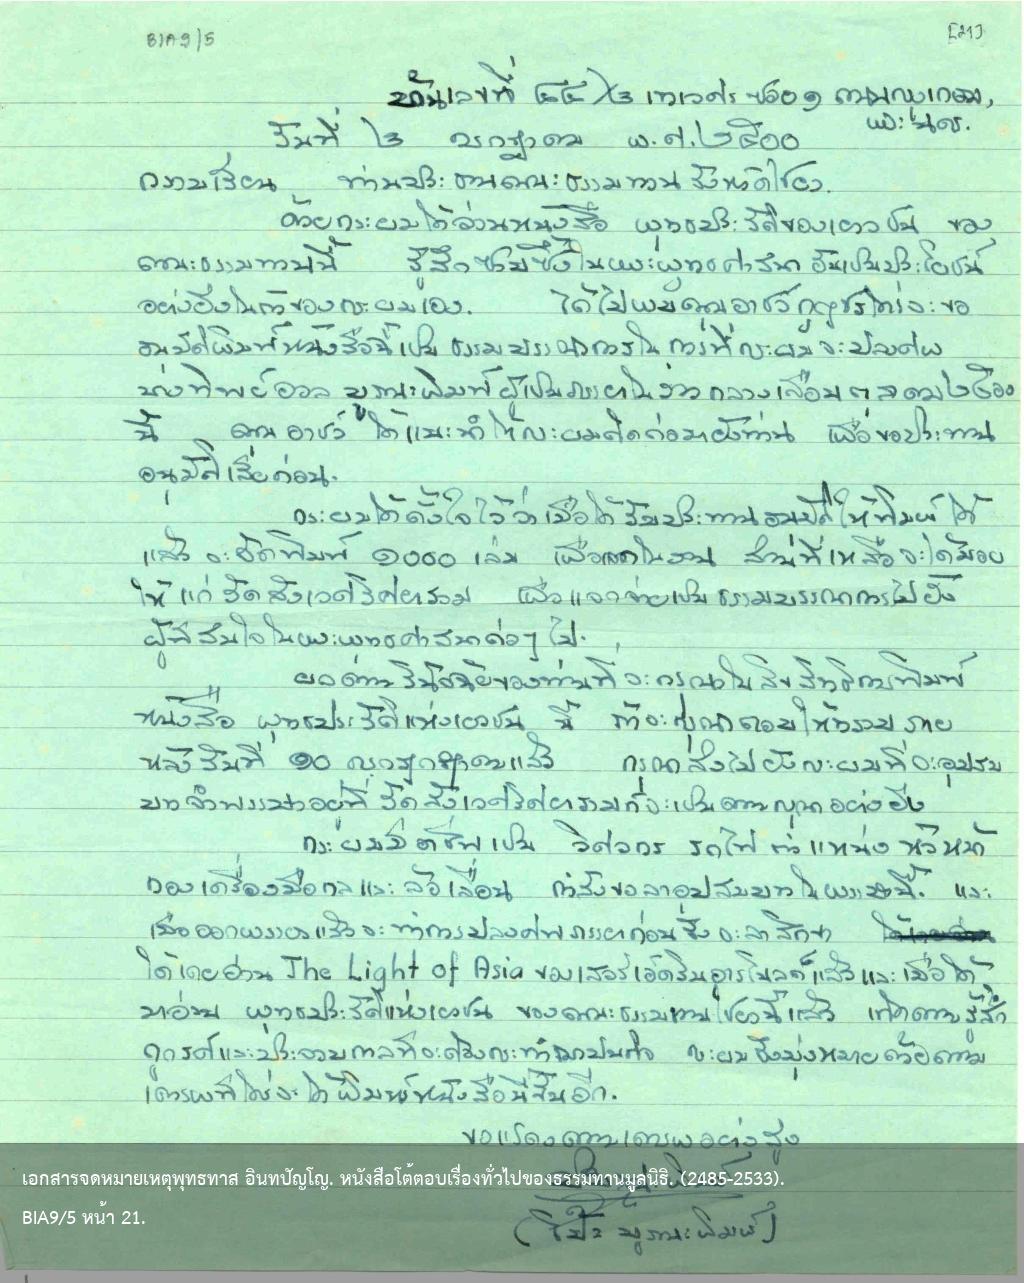 BIA9/5
[21]
บ้านเลขที่ ๔๕/๒ เทเวศร ซอย ๑ ถนนกรุงเกษม,
พระนคร.
วันที่ ๒ กรกฎาคม พ.ศ. ๒๕๐๐
กราบเรียน ท่านประธานคณะธรรมทาน จังหวัดไชยา.
ด้วยกระผมได้อ่านหนังสือ พุทธประวัติของเยาวชน ของ
คณะธรรมทานนี้ รู้สึกซาบซึ้งในพระพุทธศาสนา อันเป็นประโยชน์
อย่างยิ่งในตัวของกระผมเอง. ได้ไปพบคุณอาชว์ ใคร่จะขอ
อนุมัติพิมพ์หนังสือนี้เป็น ธรรมบรรณาการใน การที่กระผมจะปลงศพ
นางทิพย์อวล บูรณะพิมพ์ ผู้เป็นภรรยาใน กลางเดือนตุลาคม ๒๕๐๐
นี้ คุณอาชว์ ได้แนะนำให้กระผมติดต่อมายังท่าน เพื่อขอประทาน
อนุมัติเสียก่อน.
กระผมได้ตั้งใจไว้ว่าเมื่อได้รับประทานอนุมัติให้พิมพ์ได้
แล้ว จะจัดพิมพ์ ๑๐๐๐ เล่ม เพื่อแจกในงาน ส่วนที่เหลือจะได้มอบ
ให้แก่วัดสังเวศวิศยาราม เพื่อแจกจ่ายเป็นธรรมบรรณาการไปยัง
ผู้ที่สนใจในพระพุทธศาสนาต่อๆ ไป.
ผลตามวินิจฉัยของท่านที่จะกรุณาในสิทธิการพิมพ์
หนังสือ พุทธประวัติแห่งเยาวชน นี้ ถ้าจะกรุณาตอบให้ทราบ ภาย
หลังวันที่ ๑๐ กรกฎาคมแล้ว กรุณาส่งไปยังกระผมที่จะอุปสม
บทจำพรรษาอยู่ที่ วัดสังเวศวิศยารามก็จะเป็นความกรุณาอย่างยิ่ง
กระผมมีอาชีพเป็น วิศวกร รถไฟ ตำแหน่ง หัวหน้า
กองเครื่องมือกลและล้อเลื่อน กำลังขอลาอุปสมบทในพรรษานี้. และ
เมื่อออกพรรษาแล้วจะทำการปลงศพภรรยาก่อนซึ่งจะลาสิกขา
ได้เคยอ่าน The Light of Asia ของเซอร์เอ็ดวินอาร์โนลด์แล้วและเมื่อได้
มาอ่าน พุทธประวัติแห่งเยาวชน ของคณะธรรมทานไชยานี้แล้ว เกิดความรู้สึก
กระผมจึงมุ่งหมายด้วยความ
เคารพที่ใคร่จะได้พิมพ์หนังสือนี้ขึ้นอีก.
ขอแสดงความเคารพอย่างสูง
บูรณะพิมพ์)
เอกสารจดหมายเหตุพุทธทาส อินทปัญโญ. หนังสือโต้ตอบเรื่องทั่วไปของธรรมทานมูลนิธิ. (2485-2533).
BIA9/5 หน้า 21.